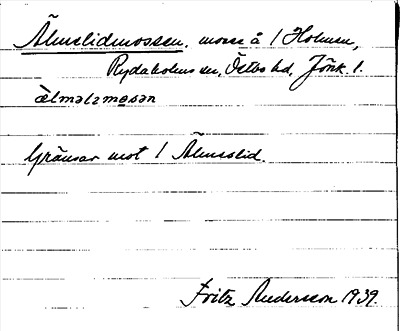 Älmslidmossen, mosse å 1 Holmen,
Rydaholms sn, Östbo hd, Jönk. l.
ælməlsmosən
Gränsar mot 1 Älmeslid.
Fritz Andersson 1939.